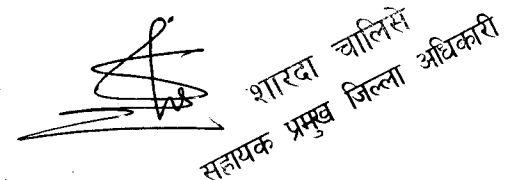 शारदा चालिसे
सहायक प्रमुख जिल्ला अधिकारी